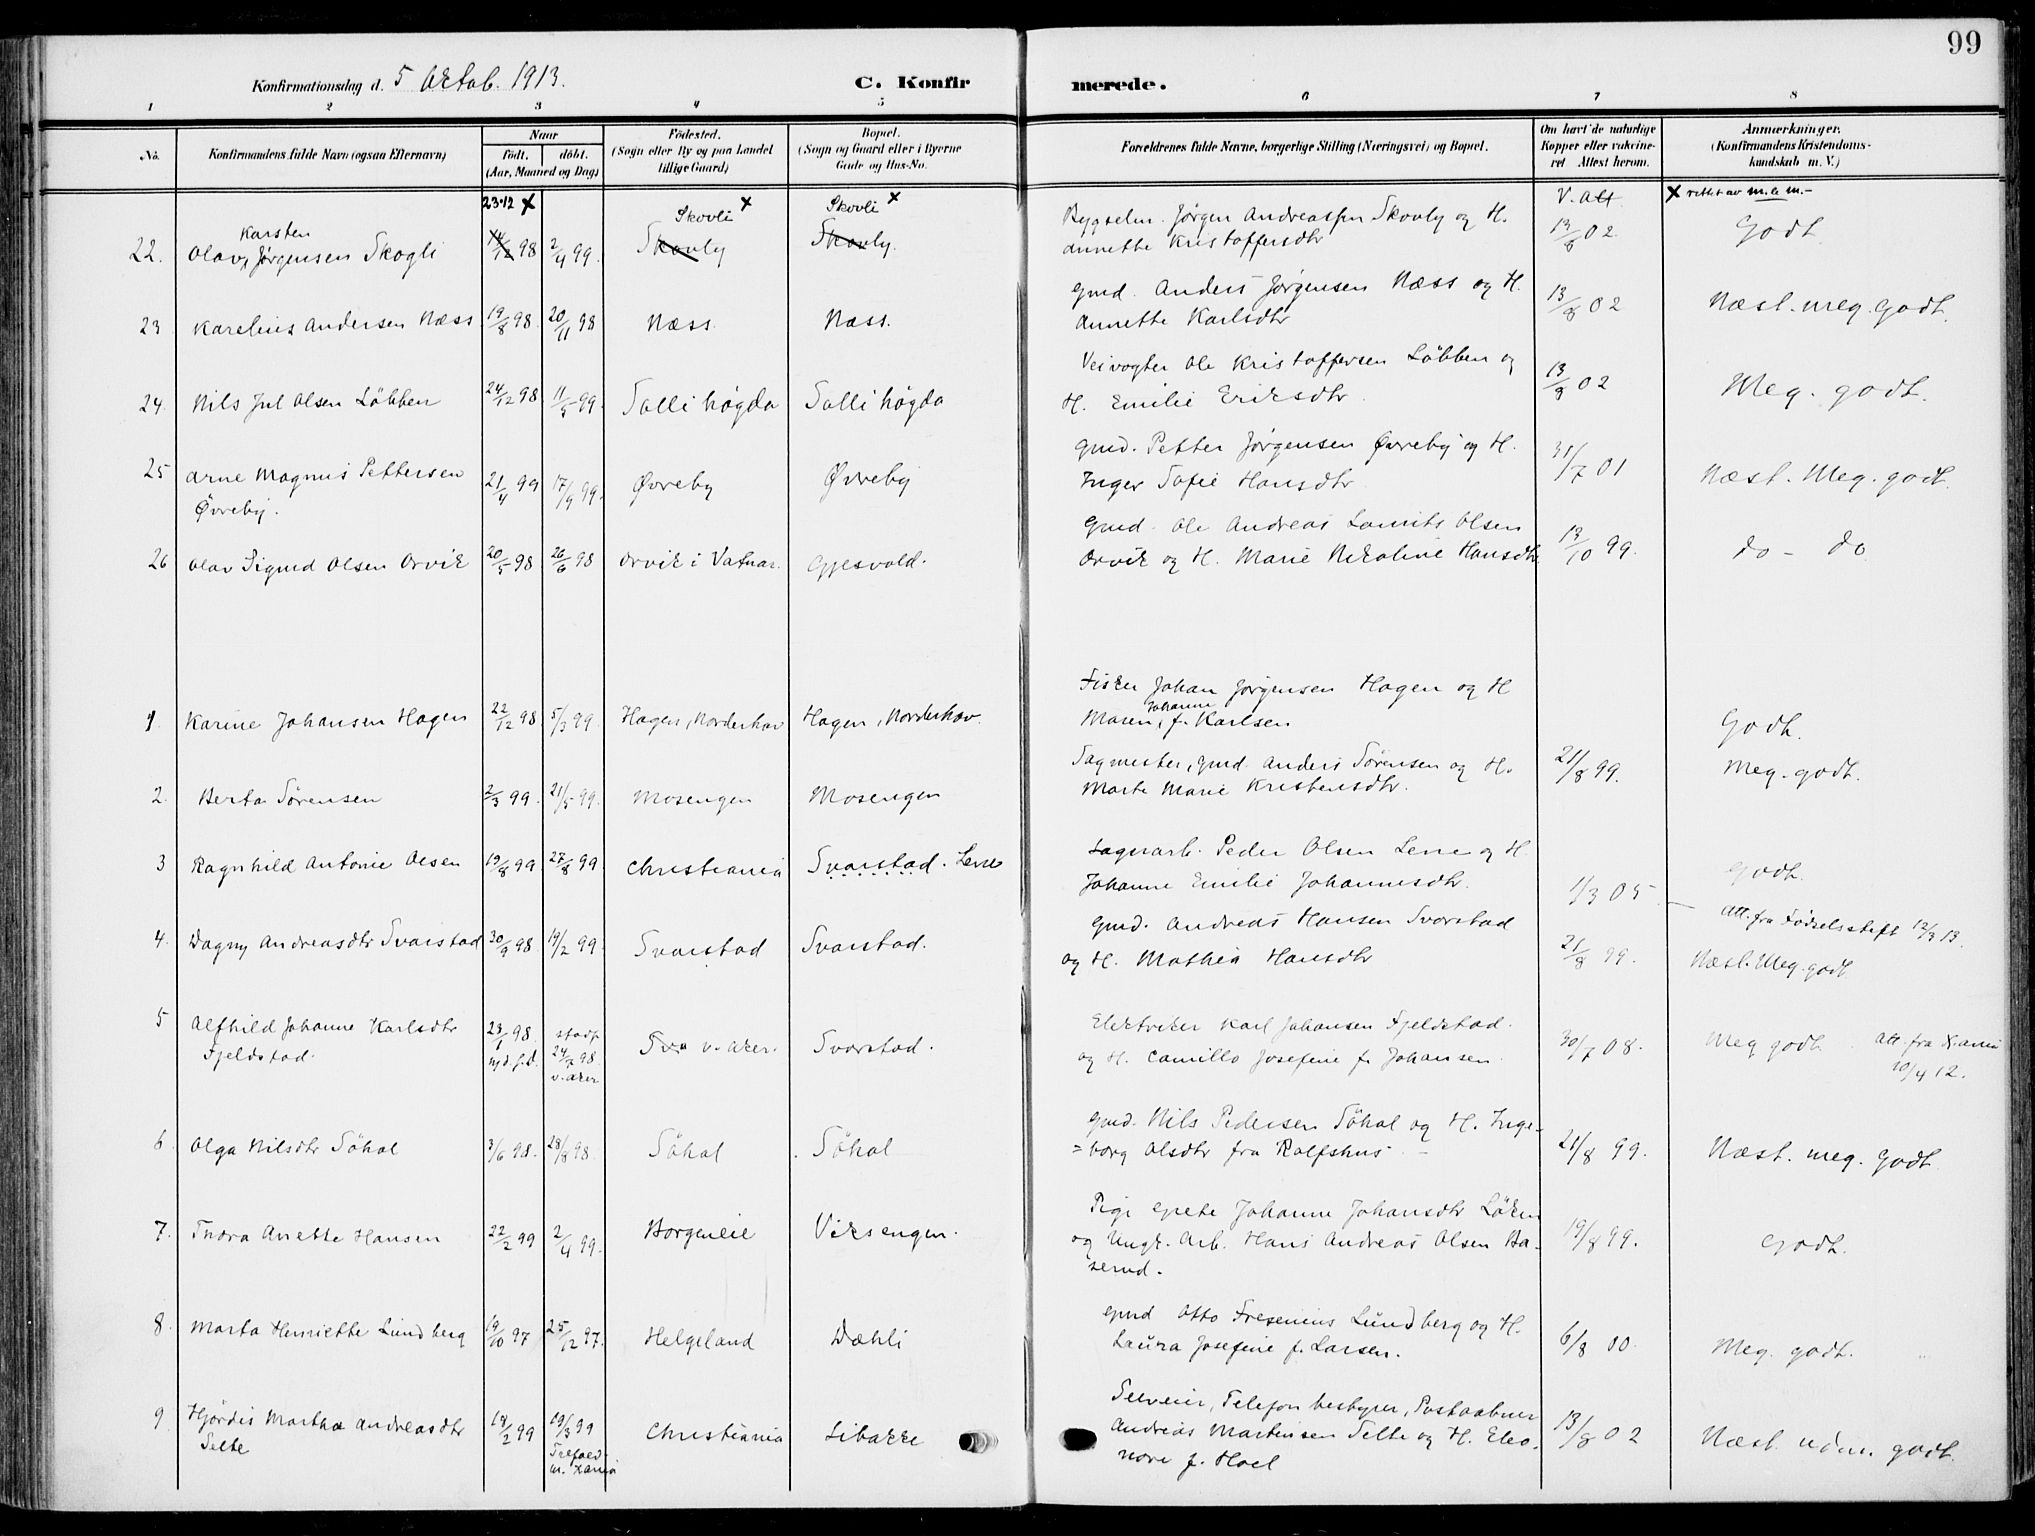 99
Konfirmationsdag d. 5 Octob. 1913. C. Konfirmerede.
1 2 3 4 5 6 7 8
No. Konfirmandens fulde Navn (ogsaa Efternavn) Naar født. døbt. (Aar, Maaned og Dag) Fødested. (Sogn eller By og paa Landet tillige Gaard) Bopæl. (Sogn og Gaard eller i Byerne Gade og Hus-No. Forældrenes fulde Navne, borgerlige Stilling (Næringsvei) og Bopæl. Om havt de naturlige Kopper eller vakcineret Attest herom. Anmærkninger. (Konfirmandens Kristendomskundskab m. V.)
23-12 x Skovli x Skovli x V. Att. x rettet av m.l.m.-
22. Olav Karsten Jørgensen Skogli 14/12 98 2/4 99. Skovly Skovly. Bygselm. Jørgen Andreassen Skovly og H. 13/8 02. Godt
Annette Kristoffersdtr
23 Karelius Andersen Næss 19/8 98 20/11 98 Næss. Næss. Gmd. Anders Jørgensen Næss og H. 13/8 02 Næst. meg. Godt.
Annette Karlsdtr
24. Nils Jul Olsen Löbben 24/12 98 11/5 99. Sollihögda Sollihögda Veivogter Ole Kristoffersen Löbben og 13/8 02 Meg. godt.
H. Emilie Eriksdtr.
25 Arne Magnus Pettersen 21/4 99 17/9 99. Øvreby Øvreby Gmd. Petter Jørgensen Øvreby og H. 31/7 01 Næst. Meg. godt.
Øvreby. Inger Sofie Hansdtr.
26 Olav Sigurd Olsen Orvik 20/5 98 26/6 98 Orvik i Vatnar. Gjesvold. Gmd. Ole Andreas Olsen 13/10 99. do - do
Orvik og H. Marie Nikoline Hansdtr.
1. Karine Johansen Hagen 22/12 98 5/3 99. Hagen, Norderhov Hagen, Norderhov. Fisker Johan Jørgensen Hagen og H Godt.
Maren Johanne, f. Karlsen
2. Berta Sørensen 2/3 99. 21/5 99. Mosengen Mosengen Sagmester, Gmd. Anders Sørensen og H. 21/8 99. Meg. godt.
Marte Marie Kristensdtr.
3 Ragnhild Antonie Olsen 19/8 99 27/8 99 Christiania Svarstad. Lerve Sagarb. Peder Olsen og H. 1/3 05 Godt.
Johanne Emilie Johannesdtr. Att. fra Fødselsstift 12/3 13.
4. Dagny Andreasdtr Svarstad 30/9 98 19/2 99. Svarstad Svarstad. Gmd. Andreas Hansen Svarstad 21/8 99. Næst. Meg. godt
og H. Mathea Hansdtr
5 Alfhild Johanne Karlsdtr 23/1 98. stadf. V. Aker. Svarstad. Elektriker Karl Johansen Fjeldstad. 30/7 08. Meg godt. Att. fra K.ania
Fjeldstad. 24/7 98. v. aker og H. Camilla Josefine f. Johansen. 10/4 12.
6 Olga Nilsdtr Söhol 3/6 98. 28/8 98. Söhol Söhol Gmd. Nils Pedersen Söhol og H. Inge- 21/8 99. Næst. meg. Godt.
=borg Olsdtr fra Rolfshus
7. Thora Anette Hansen 22/2 99 2/4 99. Borgeneie Viksengen. Pige Grete Johanne Johansdtr Løken 19/8 99. Godt.
og Ungk. Arb. Hans Andreas Olsen Ba-
serud.
8. Marta Henriette Lundberg 19/10 97 25/12 97. Helgeland Dæhli Gmd Otto Fresenius Lundberg og H. 6/8 00. Meg. godt.
Laura Josefine f. Larsen.
9 Hjørdis Martha Andreasdtr 18/2 99 19/3 99 Christiania Libakke Selveier, Telefonbestyrer, Postaabner 13/8 02 Næst. udm. godt.
Selte Trefold. m. Kania Andreas Martinsen Selte og H. Eleo-
nore f. Hoel